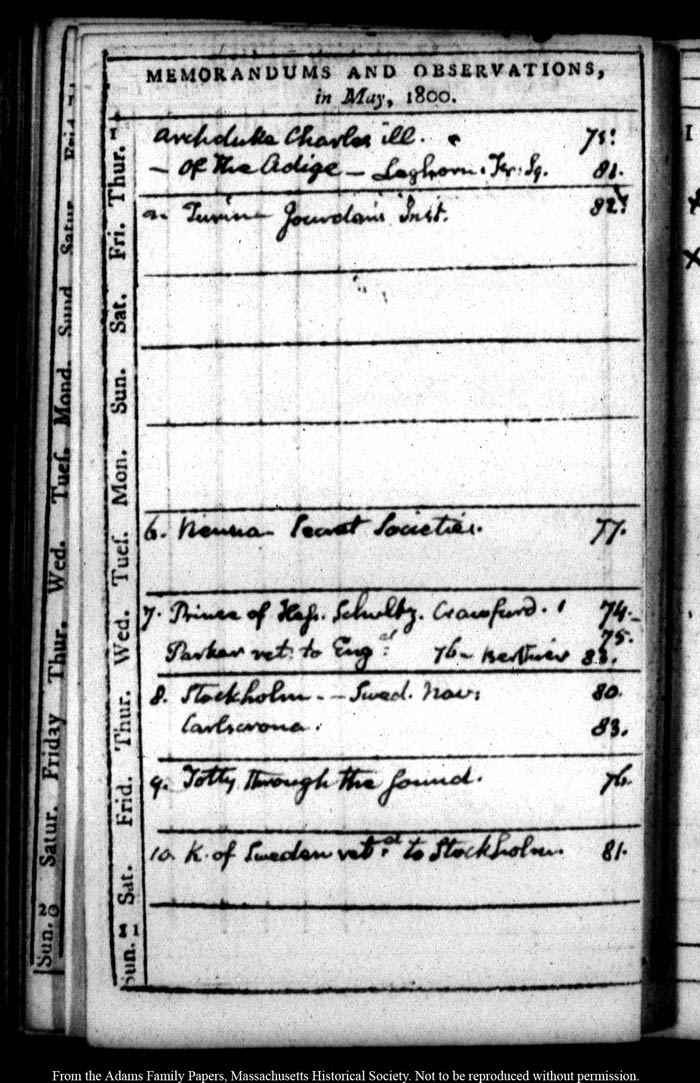 MEMORANDUMS AND OBSERVATIONS,
in May, 1800.
Thur. 1 Archduke Charles ill. 75.
— Of the Adige — Leghorn. Tr. Sq. 81.
Fri. 2. Turin Jourdan's Inst. 82.
Sat.
Sun.
Mon.
Tues. 6. Vienna Secret Societies. 77.
Wed. 7. Prince of Hess. Schultz. Crawfurd. 74.
75.
Parker retd. to Engd. 76 — 83.
Thur. 8. Stockholm. — Swed. Nav: 80.
Carlscrona. 83.
Frid. 9. Totty through the Sound. 76.
Sat. 10. K. of Sweden retd. to Stockholm. 81.
Sun. 11
Satur. Sund. Mond. Tues. Wed. Thur. Friday Satur. Sun. 20
From the Adams Family Papers, Massachusetts Historical Society. Not to be reproduced without permission.